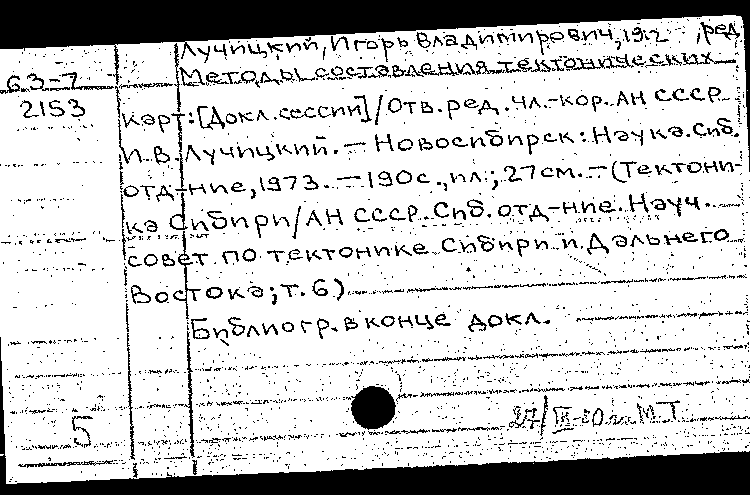 Лучицкий, Игорь Владимирович, 1912 , ред
63-7 Методы составления тектонических
2153 карт: [Докл. сессии] / Отв. ред. чл.-кор. АН СССР
И.В. Лучицкий. — Новосибирск: Наука. Сиб.
отд-ние, 1973. — 190 с., ил.; 27 см. — (Тектони-
ка Сибири / АН СССР. Сиб. отд-ние. Науч.
совет по тектонике Сибири и Дальнего
Востока; т. 6)
Библиогр. в конце докл.
5
М.Т.